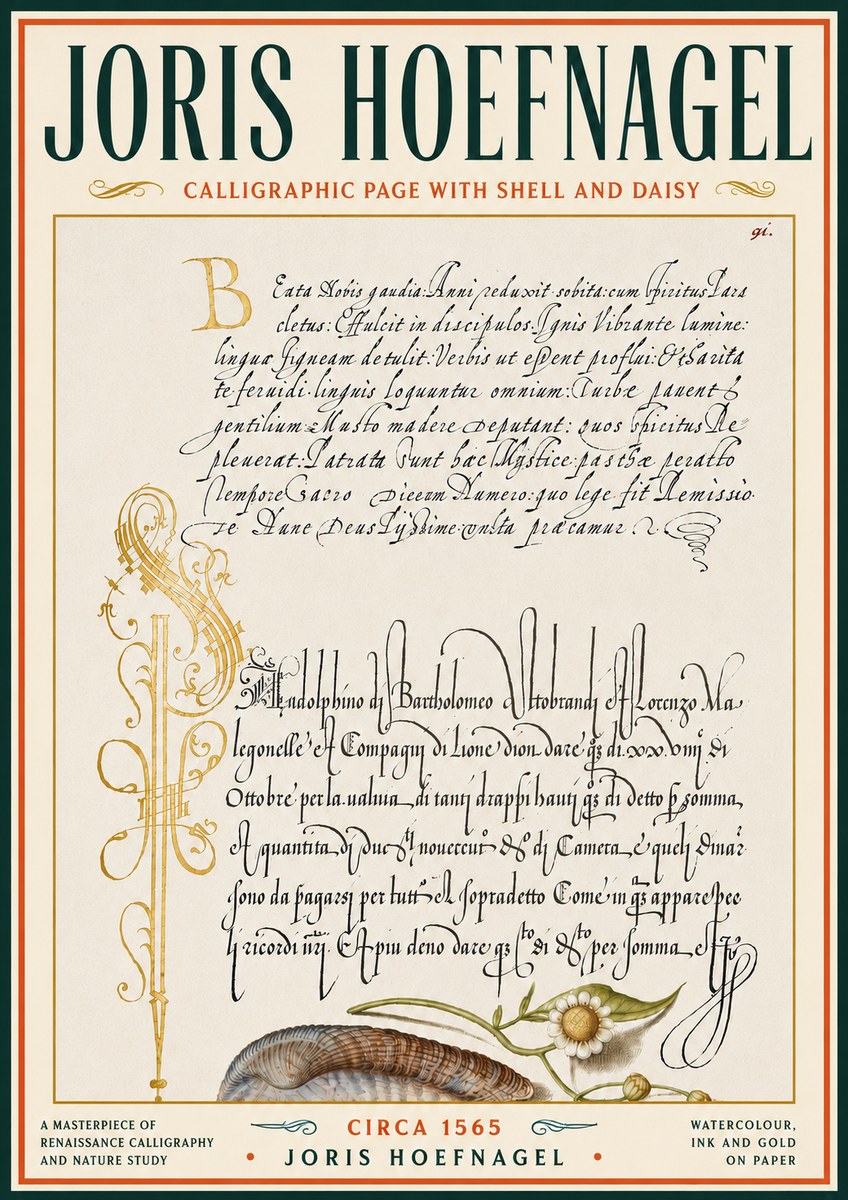 JORIS HOEFNAGEL
CALLIGRAPHIC PAGE WITH SHELL AND DAISY
gi.
BEata Nobis gaudia: Anni reduxit sobita: cum spiritus Para
cletus: Effulcit in discipulos. Ignis Vibrante lumine:
linguæ figneam detulit: Verbis ut eDent proflui: & Charita
te feruidi. linguis loquuntur omnium: Turbæ pauent
gentilium: Musto madere Deputant: quos spicitus Re
pleuerat: Patrata Sunt hæc Mystice: pasthæ peratto
Tempore Sacro Numero: quo lege fit Remissio.
Nunc Deus præcamur
Andolphino di Bartholomeo Et Lorenzo Ma
legonelle Et Compagni di Lione dion dare di. xx. di
Ottobre per la ualuta di tanti drappi hauti di detto somma
Et quantita di di Camera e queli
sono da pagarsi per sopradetto Come in appare
li ricordi Et piu deno dare di per somma
A MASTERPIECE OF
RENAISSANCE CALLIGRAPHY
AND NATURE STUDY
CIRCA 1565
• JORIS HOEFNAGEL •
WATERCOLOUR,
INK AND GOLD
ON PAPER